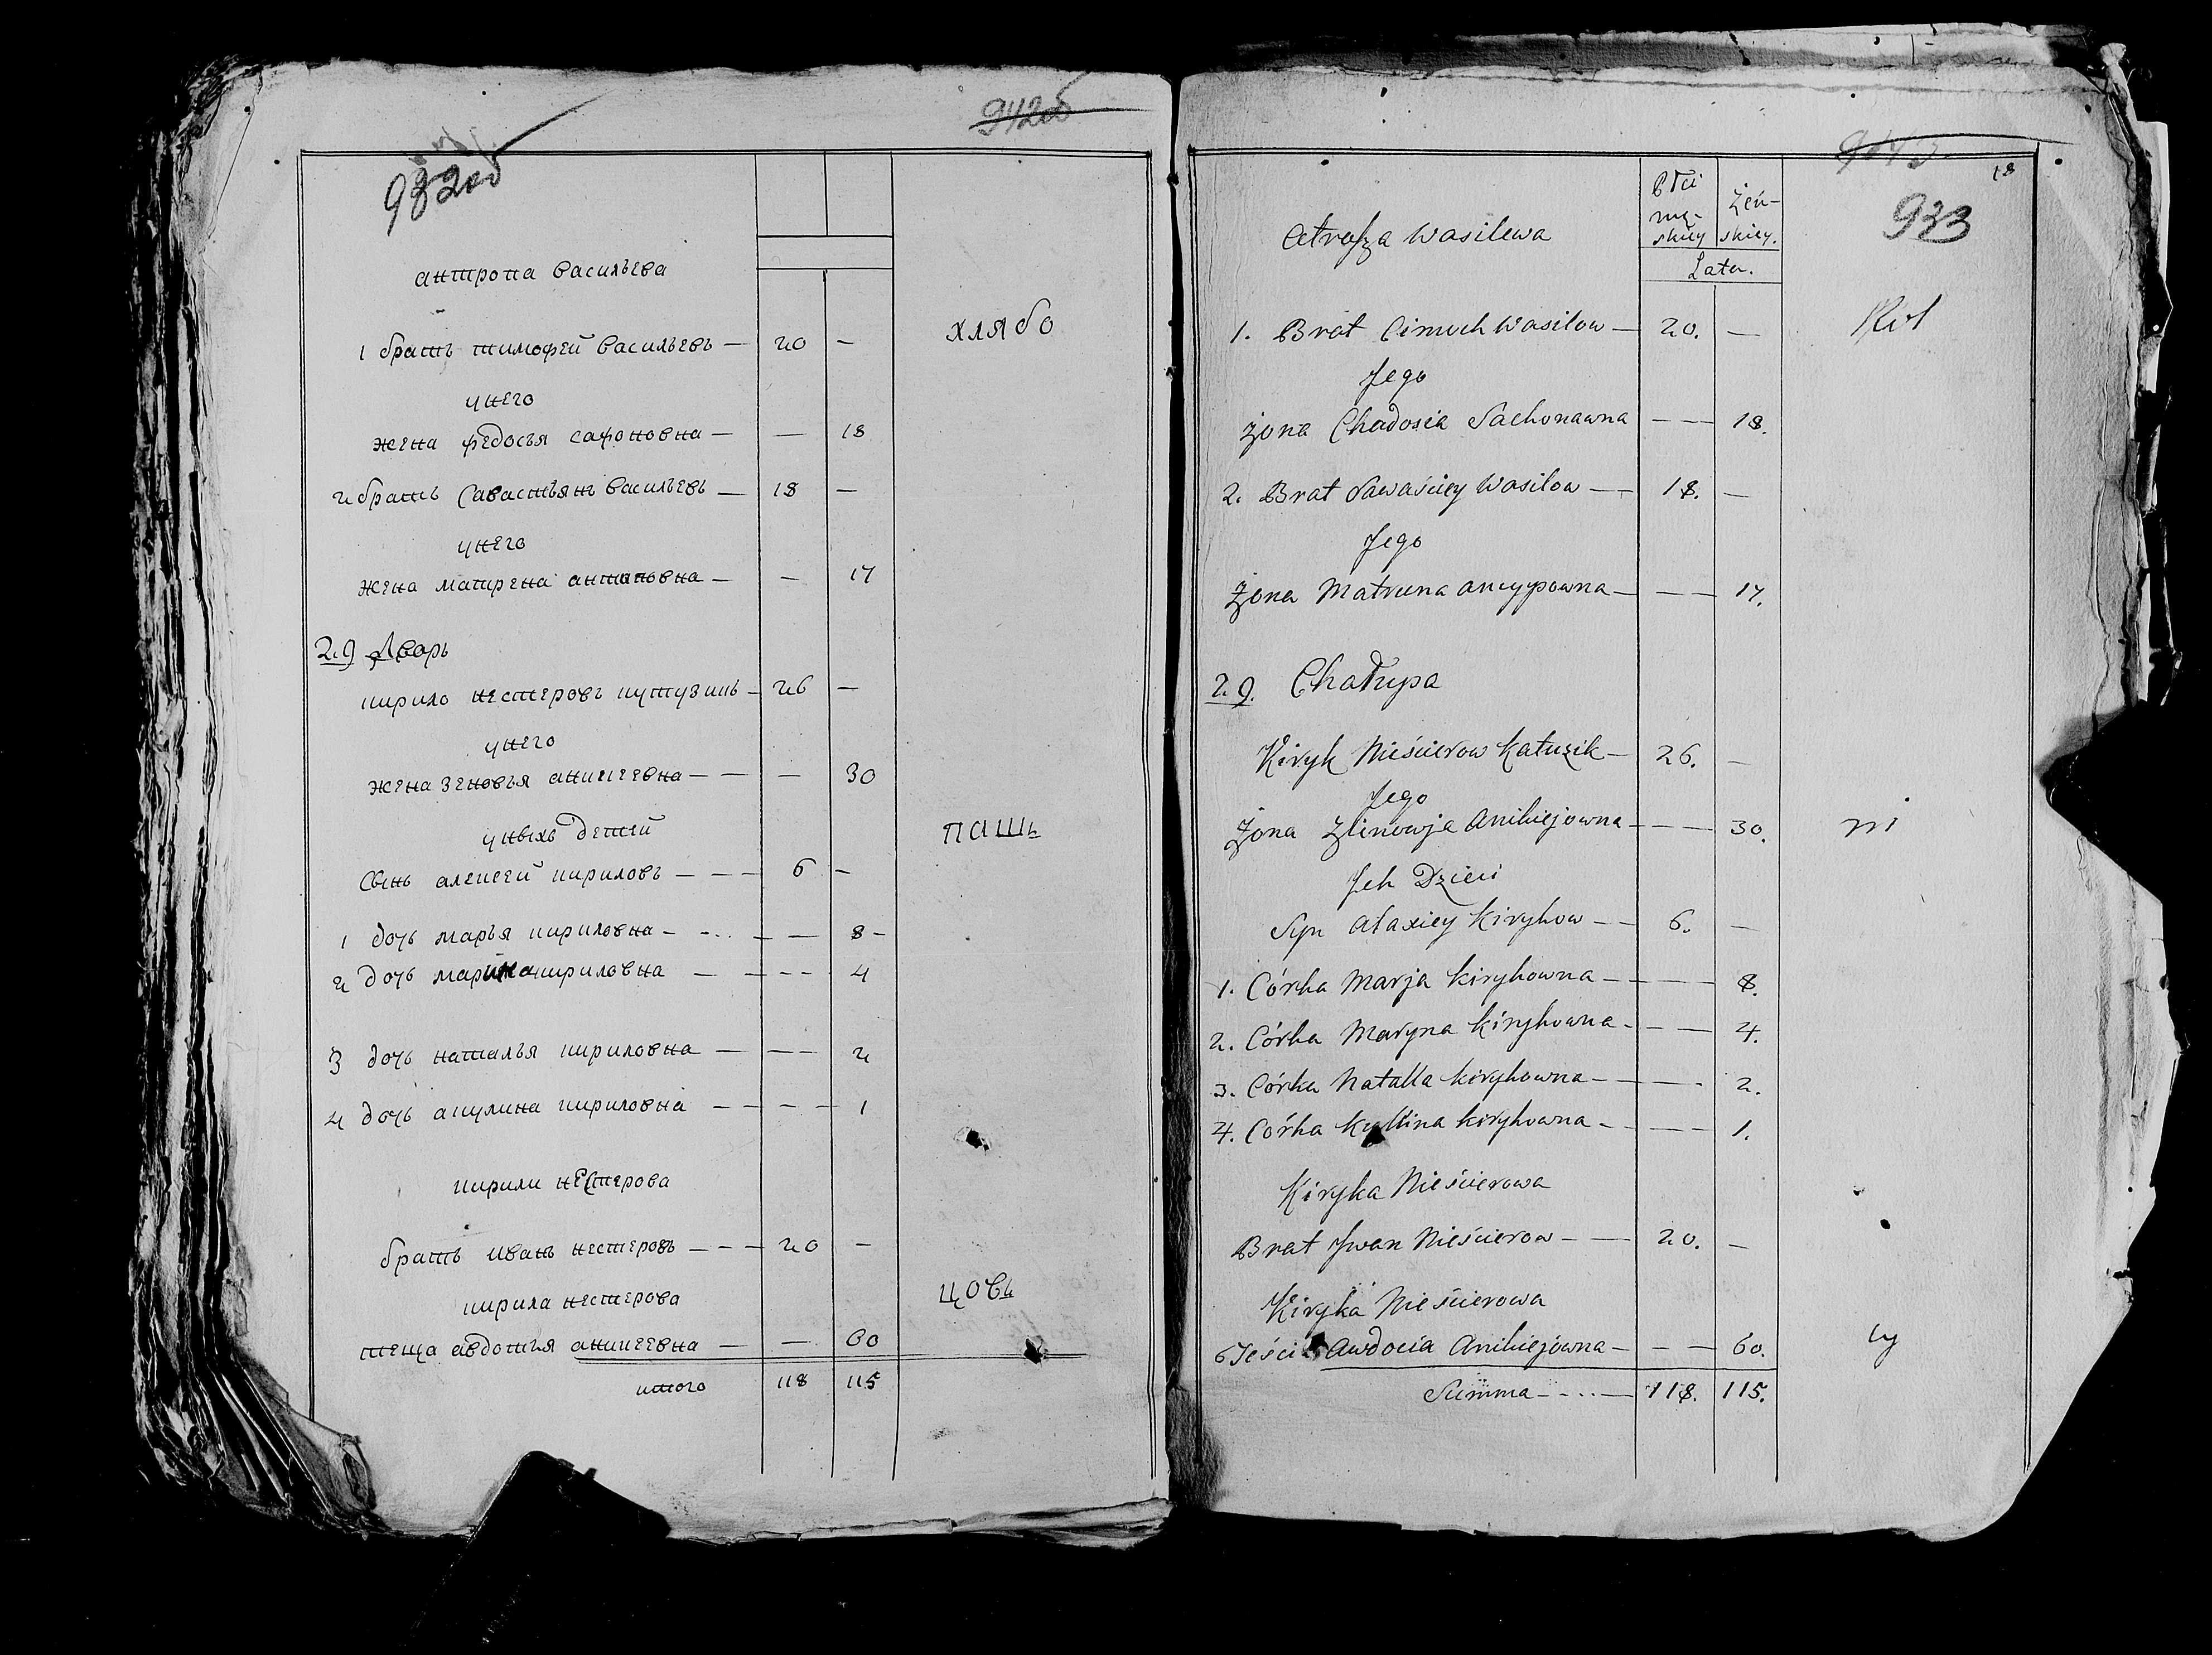 942об
932об
антропа васильева
1 братъ тимофей васильевъ — 20 —
хлябо
у него
жена федосья сафоновна — — 18
2 братъ савастьянъ васильевъ — 18 —
у него
жена матрена антиповна — — 17
29 Дворъ
кирило нестеровъ кутузикъ — 26 —
у него
жена зеновья аникеевна — — — 30
у нихъ детей
пашъ
сынъ алексей кириловъ — — — 6 —
1 дочь марья кириловна — — — 8 —
2 дочь марина кириловна — — — — 4
3 дочь наталья кириловна — — — 2
4 дочь акулина кириловна — — — — 1
кирили нестерова
братъ иванъ нестеровъ — — — 20 —
цовъ
кирила нестерова
теща авдотья аникеевна — — 60
итого 118 115
18
933
Płci
mę-
skiey
żeń-
skiey.
Lata.
Atrofza Wasilewa
1. Brat Cimoch Wasilow — 20. —
Rol
Jego
żona Chadosia Sachonawna — — 18.
2. Brat Sawaściey Wasilow — 18. —
Jego
Żona Matruna Ancypowna — — — 17.
29. Chałupa
Kiryk Nieścierow Katuzik — 26. —
Jego
Żona Zlinowja Anikiejowna — — — 30.
ni
Jch Dzieci
Syn Alaxiey Kirykow — — 6. —
1. Córka Marja Kirykowna — — — 8.
2. Córka Maryna Kirykowna — — — 4.
3. Córka Natalla Kirykowna — — — 2.
4. Córka Kullina Kirykowna — — — 1.
Kiryka Nieścierowa
Brat Jwan Nieścierow — — 20. —
Kiryka Nieścierowa
Awdocia Anikiejowna — — — 60.
cy
Summa — — — 118. 115.